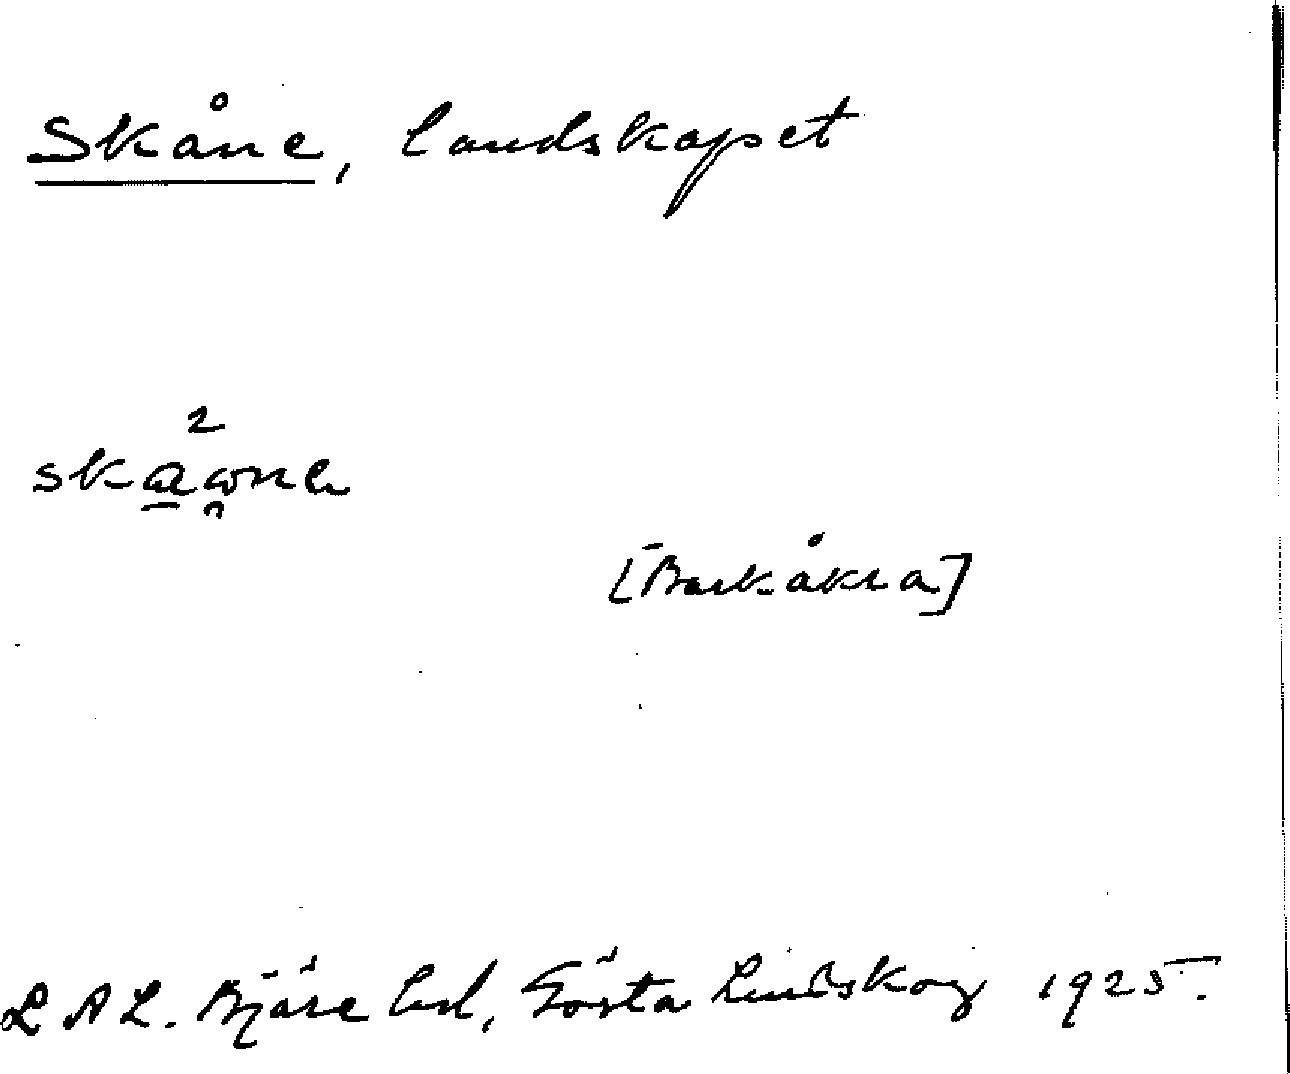 Skåne, landskapet
2
[Barkåkra]
L A L. Bjäre hd, Gösta Lindskog 1925.